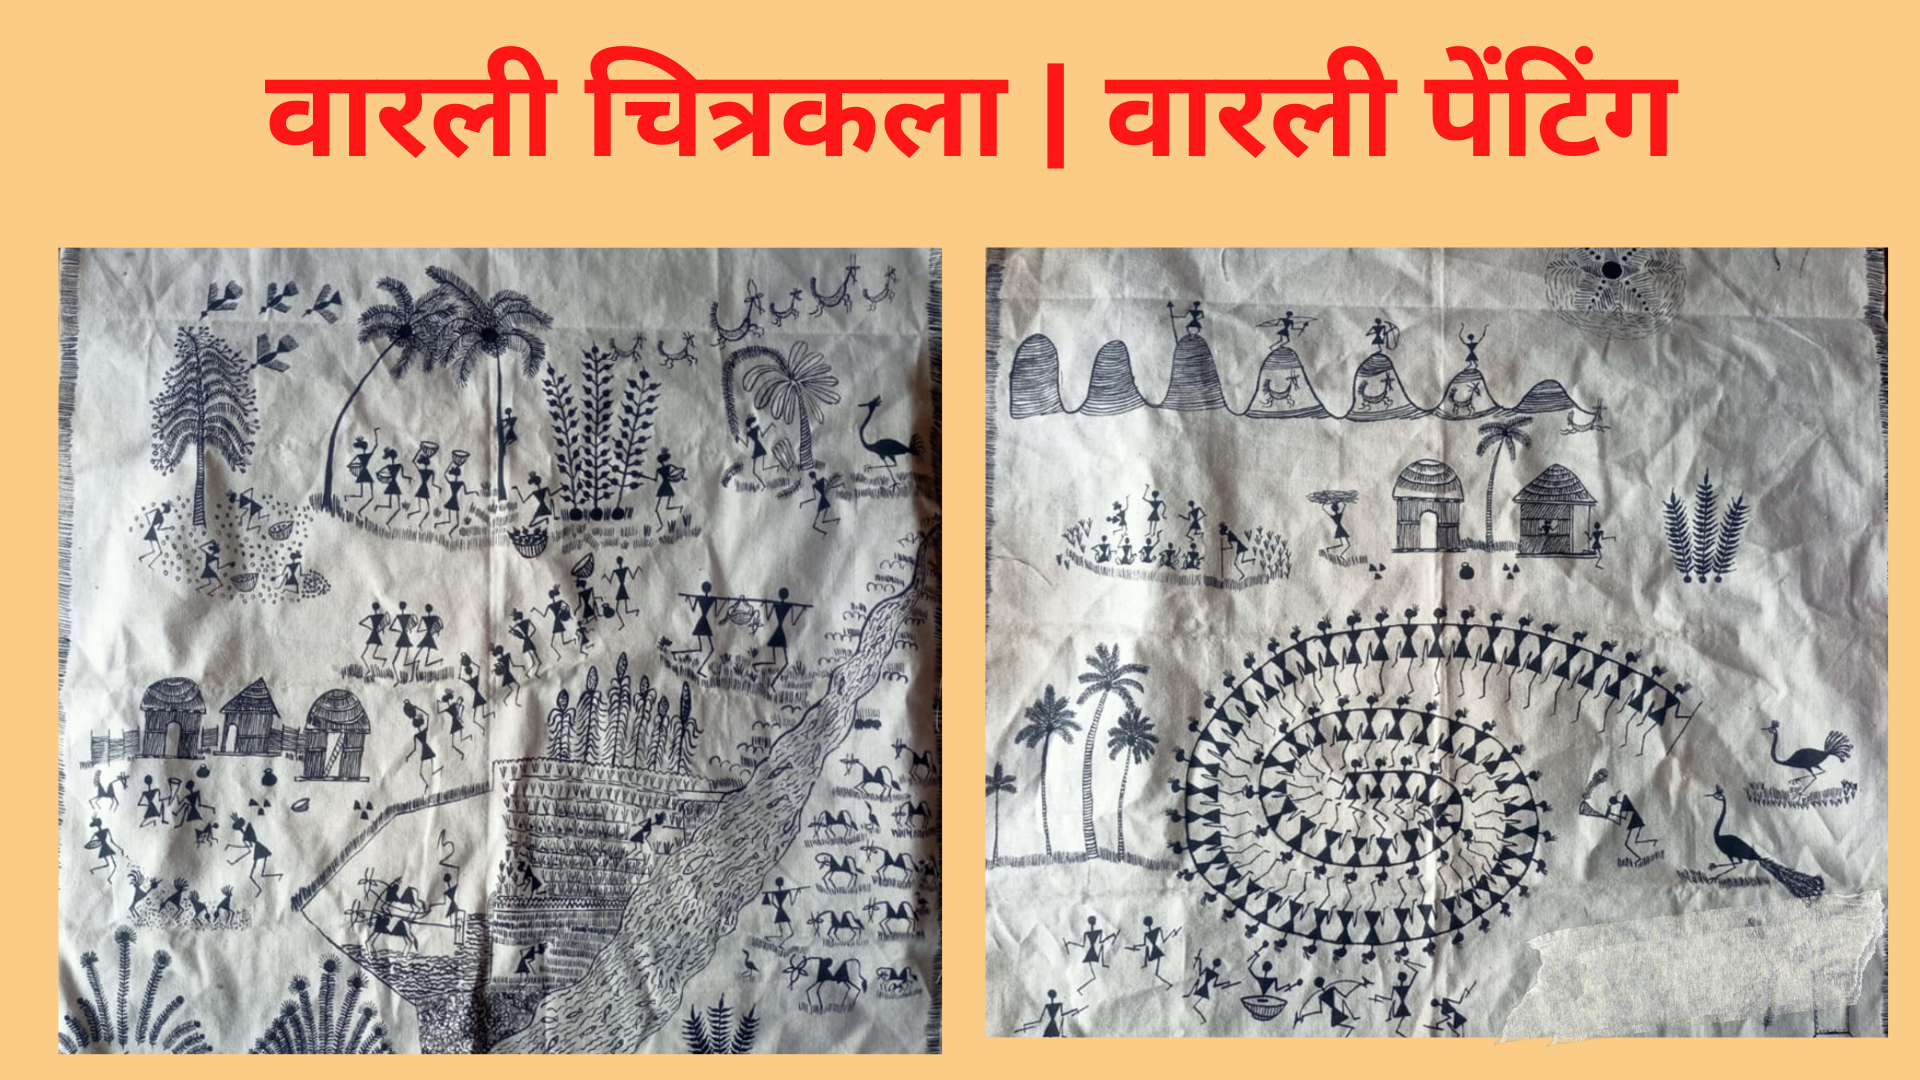 वारली चित्रकला | वारली पेंटिंग